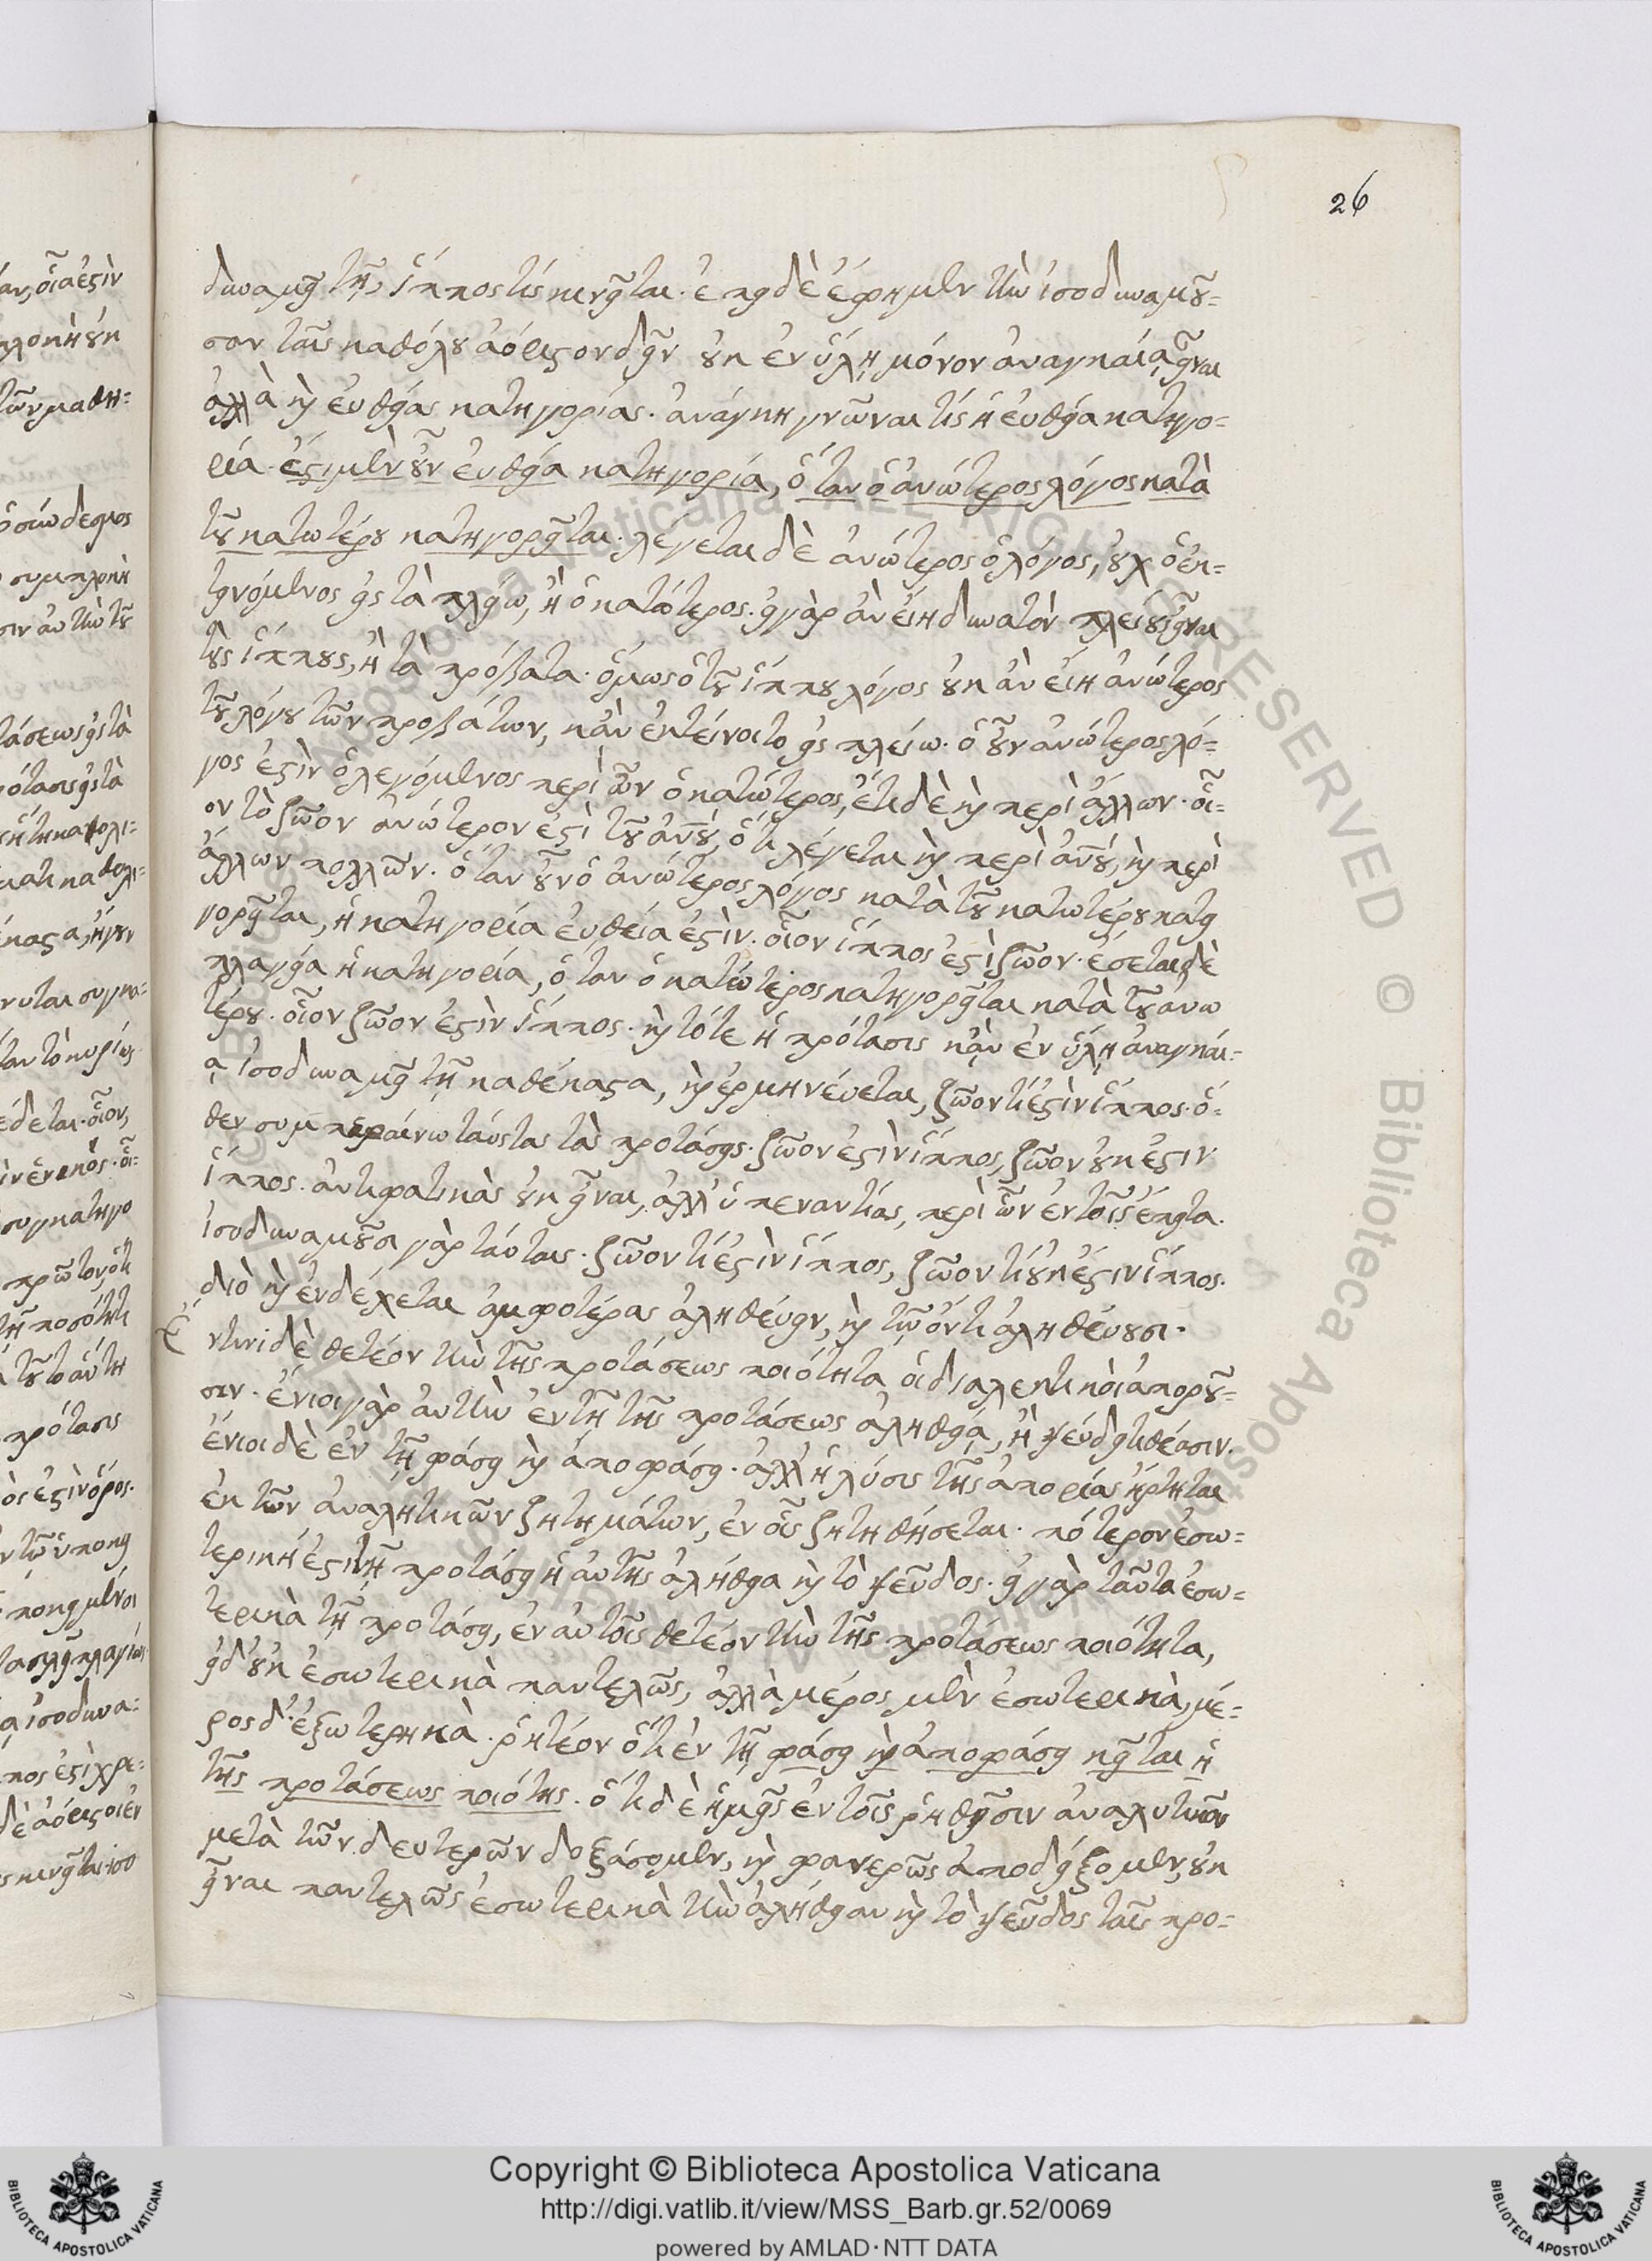 26
δυναμεῖ τῇ, ἵππος τὶς κινεῖται. ἐπεὶ δὲ ἔφημεν τὴν ἰσοδυναμοῦ=
σαν ταῖς καθόλου ἀόριστον δεῖν οὐκ ἐν ὕλῃ μόνον ἀναγκαίᾳ εἶναι
ἀλλὰ καὶ εὐθείας κατηγορίας. ἀνάγκη γνῶναι τίς ἡ εὐθεῖα κατηγο=
ρία. ἔστι μὲν οὖν εὐθεῖα κατηγορία, ὅταν ὁ ἀνώτερος λόγος κατὰ
τοῦ κατωτέρου κατηγορεῖται. λέγεται δὲ ἀνώτερος ὁ λόγος, οὐχ ὁ ἐκ=
τεινόμενος εἰς τὰ πλείω, ἢ ὁ κατώτερος. εἰ γὰρ ἂν εἴη δυνατὸν πλείους εἶναι
τοὺς ἵππους, ἢ τὰ πρόβατα. ὅμως ὁ τοῦ ἵππου λόγος οὐκ ἂν εἴη ἀνώτερος
τοῦ λόγου τῶν προβάτων, κἂν ἐκτείνοιτο εἰς πλείω. ὁ οὖν ἀνώτερος λό=
γος ἐστὶν ὁ λεγόμενος περὶ ὧν ὁ κατώτερος, ἔτι δὲ καὶ περὶ ἄλλων. οἷ=
ον τὸ ζῶον ἀνώτερον ἐστὶ τοῦ ἀνου, ὅτι λέγεται καὶ περὶ ἀνου, καὶ περὶ
ἄλλων πολλῶν. ὅταν οὖν ὁ ἀνώτερος λόγος κατὰ τοῦ κατωτέρου κατη
γορεῖται, ἡ κατηγορία εὐθεῖα ἐστὶν. οἷον ἵππος ἐστὶ ζῶον. ἔσεται δὲ
πλαγεία ἡ κατηγορία, ὅταν ὁ κατώτερος κατηγορεῖται κατὰ τοῦ ἀνω
τέρου. οἷον ζῶον ἐστὶν ἵππος. καὶ τότε ἡ πρότασις κἂν ἐν ὕλῃ ἀναγκαί=
ᾳ ἰσοδυναμεῖ τῇ καθέκαστα, καὶ ἑρμηνεύεται, ζῶον τὶ ἐστὶν ἵππος. ὅ=
θεν συμπεραίνω ταύτας τὰς προτάσεις. ζῶον ἐστὶν ἵππος, ζῶον οὐκ ἔστιν
ἵππος. ἀντιφατικὰς οὐκ εἶναι, ἀλλ' ὑπεναντίας, περὶ ὧν ἐν τοῖς ἔπειτα.
ἰσοδυναμοῦσι γὰρ ταύταις. ζῶον τὶ ἐστὶν ἵππος, ζῶον τὶ οὐκ ἔστιν ἵππος.
διὸ καὶ ἐνδέχεται ἀμφοτέρας ἀληθεύειν, καὶ τῷ ὄντι ἀληθεύουσι.
Ἐ ντινι δὲ θετέον τὴν τῆς προτάσεως ποιότητα οἱ διαλεκτικοὶ ἀποροῦ=
σιν. ἔνιοι γὰρ αὐτὴν ἐν τῇ τῆς προτάσεως ἀληθείᾳ, ἢ ψεύδει τιθέασιν.
ἔνιοι δὲ ἐν τῇ φάσει καὶ ἀποφάσει. ἀλλ' ἡ λύσις τῆς ἀπορίας ἤρτηται
ἐκ τῶν ἀναλητικῶν ζητημάτων, ἐν οἷς ζητηθήσεται. πότερον ἐσω=
τερικὴ ἐστὶ τῇ προτάσει ἡ αὐτῆς ἀλήθεια καὶ τὸ ψεῦδος. εἰ γὰρ ταῦτα ἐσω=
τερικὰ τῇ προτάσει, ἐν αὐτοῖς θετέον τὴν τῆς προτάσεως ποιότητα,
εἰ δ' οὐκ ἐσωτερικὰ παντελῶς, ἀλλὰ μέρος μὲν ἐσωτερικὰ, μέ=
ρος δ' ἐξωτερηκὰ. ῥητέον ὅτι ἐν τῇ φάσει καὶ ἀποφάσει κεῖται ἡ
τῆς προτάσεως ποιότης. ὅτι δὲ ἡμεῖς ἐν τοῖς ῥηθεῖσιν ἀναλυτικοῖς
μετὰ τῶν δευτερῶν δοξάσομεν, καὶ φανερῶς ἀποδείξομεν, οὐκ
εἶναι παντελῶς ἐσωτερικὰ τὴν ἀλήθειαν καὶ τὸ ψεῦδος ταῖς προ=
Copyright © Biblioteca Apostolica Vaticana
http://digi.vatlib.it/view/MSS_Barb.gr.52/0069
powered by AMLAD·NTT DATA